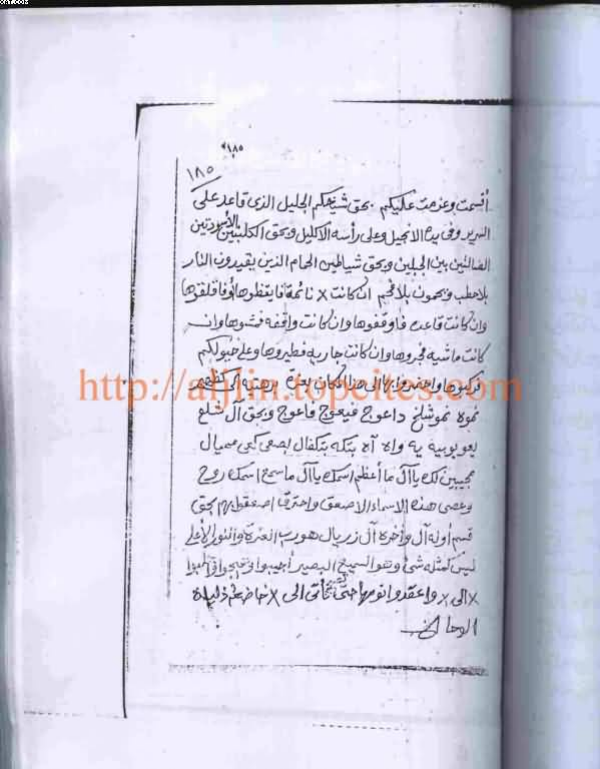 ١٨٥
١٨٥
أقسمت وعزمت عليكم بحق شيخكم الجليل الذي قاعد على
السرير وفي يده الانجيل وعلى رأسه الاكليل وبحق الكلبتين الأسودتين
الضالتين بين الجبلين وبحق شياطين الحمام الذين يقيدون النار
بلاحطب ويحمون بلا فحم ان كانت x نائمة فايقظوها أو فاقلقوها
وان كانت قاعده فاوقفوها وان كانت واقفه فمشوها وان
كانت ماشيه فجروها وان كانت جاريه فطيروها وعلى خيولكم
فركبوها واحضروا بها الى هذا المكان بعزة
نموه نموشلخ داعوج فيعوج فاعوج وبحق ال شلع
يعو يوبيه يه واه اه بتكه بتكفال بصعى كعى مميال
مجيبين لك يا آل ما أعظم اسمك يا آل ما سمع اسمك روح
وعصى هذه الاسماء الا صعق واحترق بحق
قسم أوله آل وآخره آل زريال هورب العزة والنور الأعلى
ليس كمثله شئ وهو السميع البصير أجيبوا
x الى x واعقدوا نومها حتى تأتي الى x خاضعة ذليلة
http://aljjin.topcites.com